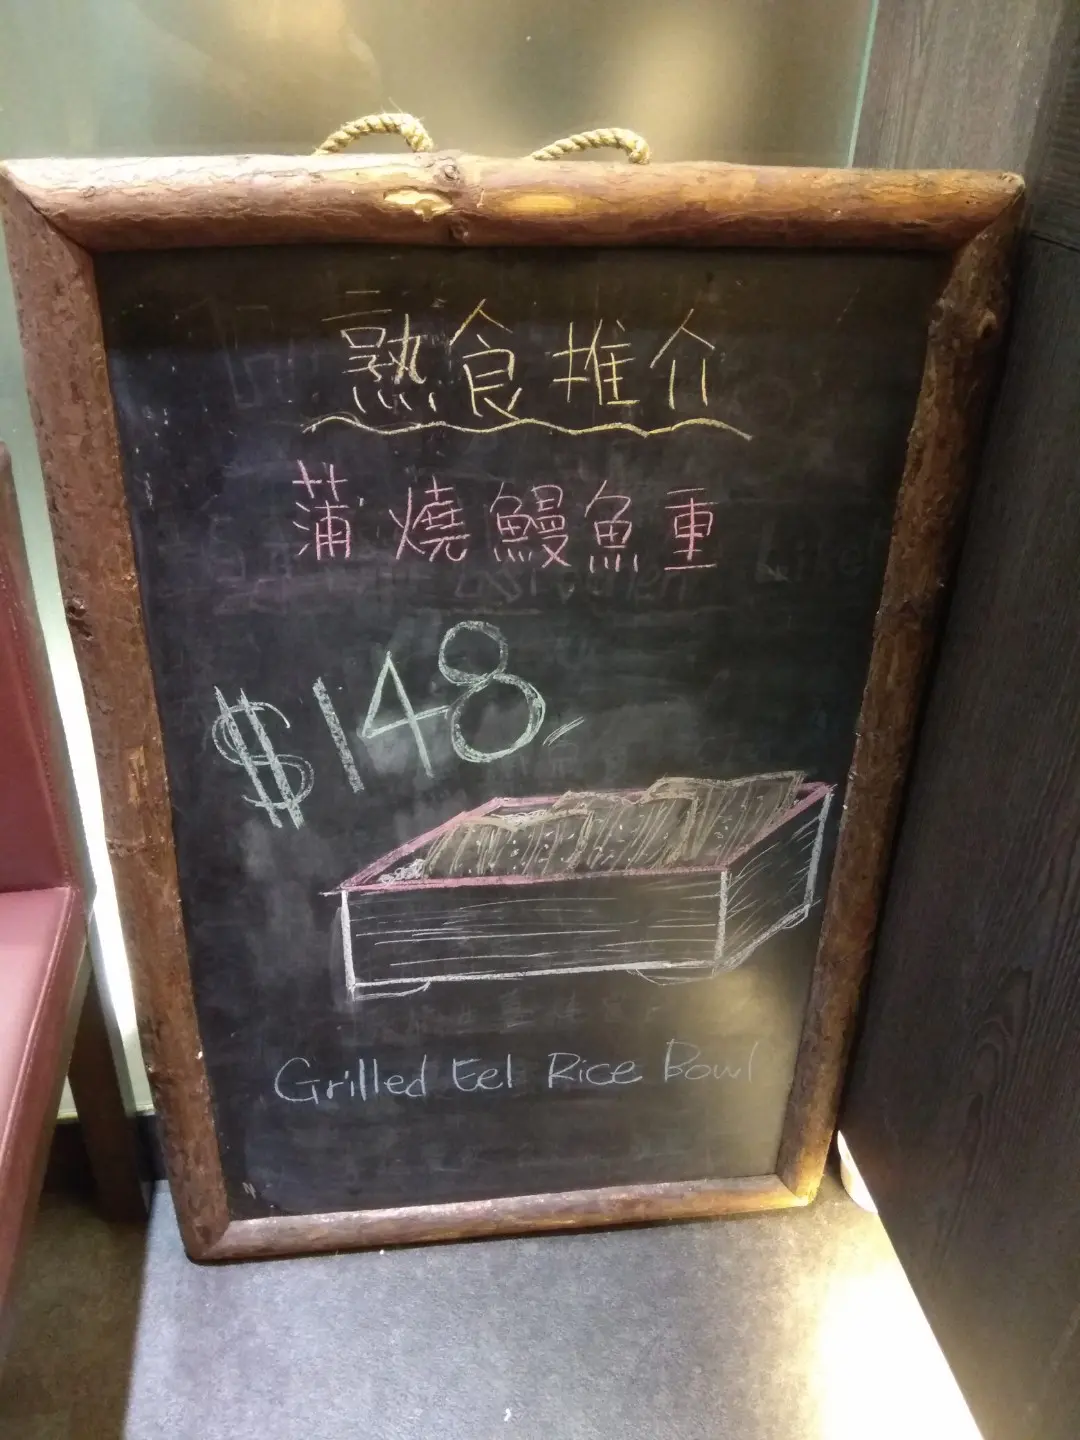 熟食推介
蒲燒鰻魚重
$148
Grilled Eel Rice Bowl